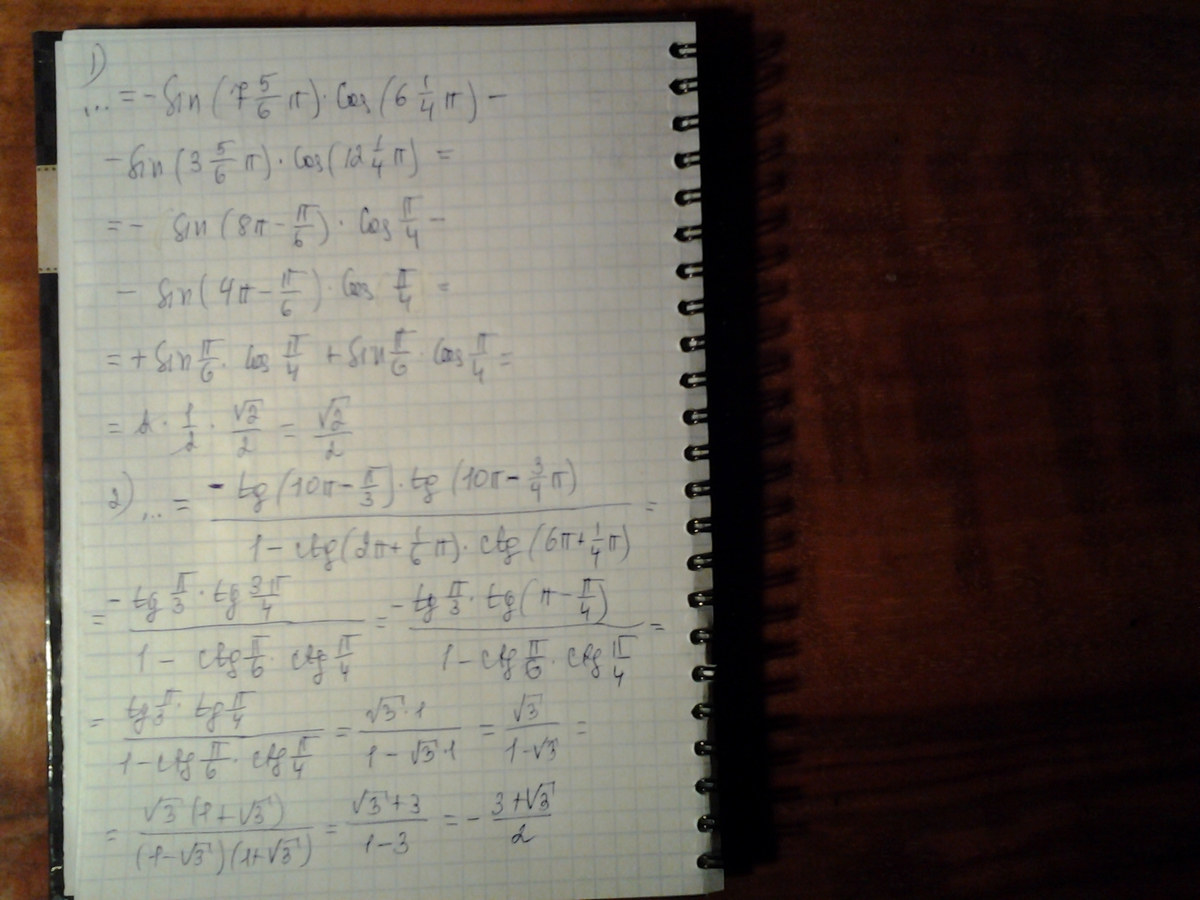 1)
... = - sin(7 5/6 π) · cos(6 1/4 π) -
- sin(3 5/6 π) · cos(12 1/4 π) =
= - sin(8π - π/6) · cos π/4 -
- sin(4π - π/6) · cos π/4 =
= + sin π/6 · cos π/4 + sin π/6 · cos π/4 =
= 2 · 1/2 · √2/2 = √2/2
2) ... = (- tg(10π - π/3) · tg(10π - 3/4 π)) / (1 - ctg(2π + 1/6 π) · ctg(6π + 1/4 π)) =
= (- tg π/3 · tg 3π/4) / (1 - ctg π/6 · ctg π/4) = (- tg π/3 · tg(π - π/4)) / (1 - ctg π/6 · ctg π/4) =
= (tg π/3 · tg π/4) / (1 - ctg π/6 · ctg π/4) = (√3 · 1) / (1 - √3 · 1) = √3 / (1 - √3) =
= (√3 (1 + √3)) / ((1 - √3)(1 + √3)) = (√3 + 3) / (1 - 3) = - (3 + √3) / 2